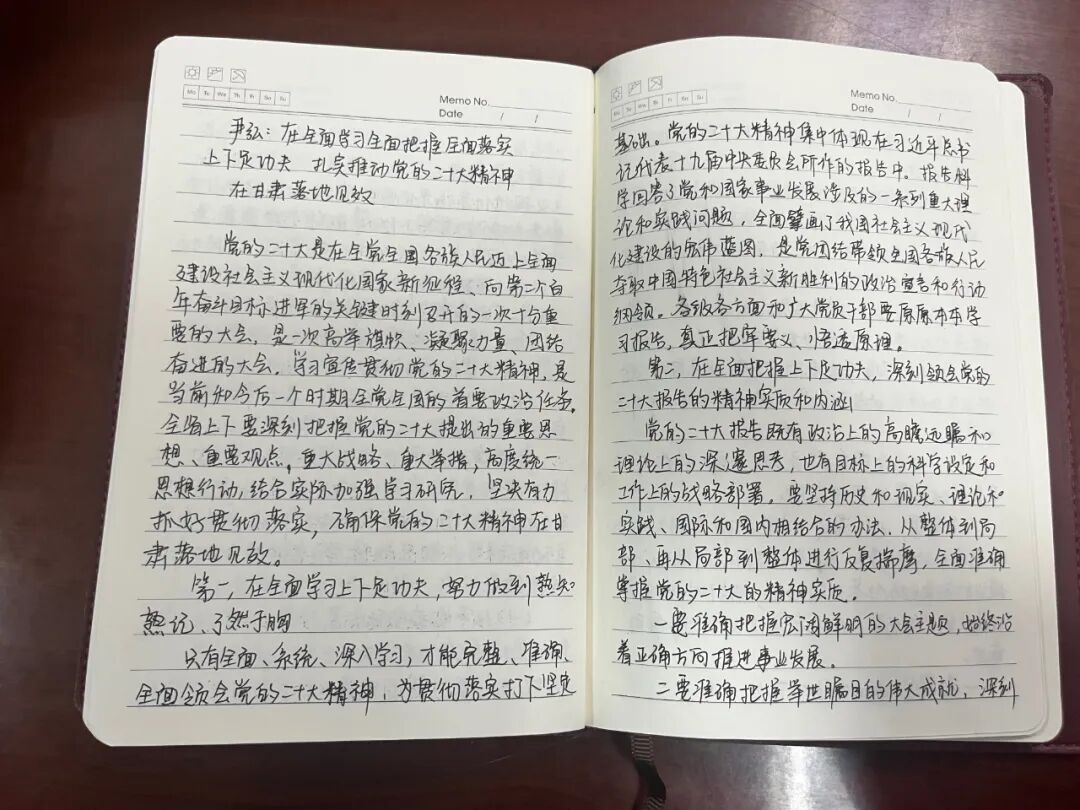 Mo Tu We Th Fr Sa Su
Memo No.
Date / /
尹弘：在全面学习全面把握全面落实
上下足功夫 扎实推动党的二十大精神
在甘肃落地见效
党的二十大是在全党全国各族人民迈上全面
建设社会主义现代化国家新征程、向第二个百
年奋斗目标进军的关键时刻召开的一次十分重
要的大会，是一次高举旗帜、凝聚力量、团结
奋进的大会，学习宣传贯彻党的二十大精神，是
当前和今后一个时期全党全国的首要政治任务。
全省上下要深刻把握党的二十大提出的重要思
想、重要观点、重大战略、重大举措，高度统一
思想行动，结合实际加强学习研究，坚决有力
抓好贯彻落实，确保党的二十大精神在甘
肃落地见效。
第一，在全面学习上下足功夫，努力做到熟知
熟记、了然于胸
只有全面、系统、深入学习，才能完整、准确、
全面领会党的二十大精神，为贯彻落实打下坚实
Mo Tu We Th Fr Sa Su
Memo No.
Date / /
基础。党的二十大精神集中体现在习近平总书
记代表十九届中央委员会所作的报告中。报告科
学回答了党和国家事业发展涉及的一系列重大理
论和实践问题，全面擘画了我国社会主义现代
化建设的宏伟蓝图，是党团结带领全国各族人民
夺取中国特色社会主义新胜利的政治宣言和行动
纲领。各级各方面和广大党员干部要原原本本学
习报告，真正把牢要义、悟透原理。
第二，在全面把握上下足功夫，深刻领会党的
二十大报告的精神实质和内涵
党的二十大报告既有政治上的高瞻远瞩和
理论上的深邃思考，也有目标上的科学设定和
工作上的战略部署。要坚持历史和现实、理论和
实践、国际和国内相结合的办法，从整体到局
部、再从局部到整体进行反复揣摩，全面准确
掌握党的二十大的精神实质。
一要准确把握宏阔鲜明的大会主题，始终沿
着正确方向推进事业发展。
二要准确把握举世瞩目的伟大成就，深刻